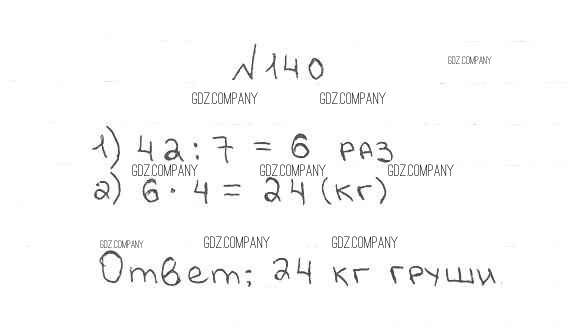 №140
GDZ.COMPANY
GDZ.COMPANY GDZ.COMPANY
1) 42 : 7 = 6 раз
GDZ.COMPANY GDZ.COMPANY GDZ.COMPANY
2) 6 · 4 = 24 (кг)
GDZ.COMPANY GDZ.COMPANY GDZ.COMPANY
Ответ: 24 кг груши